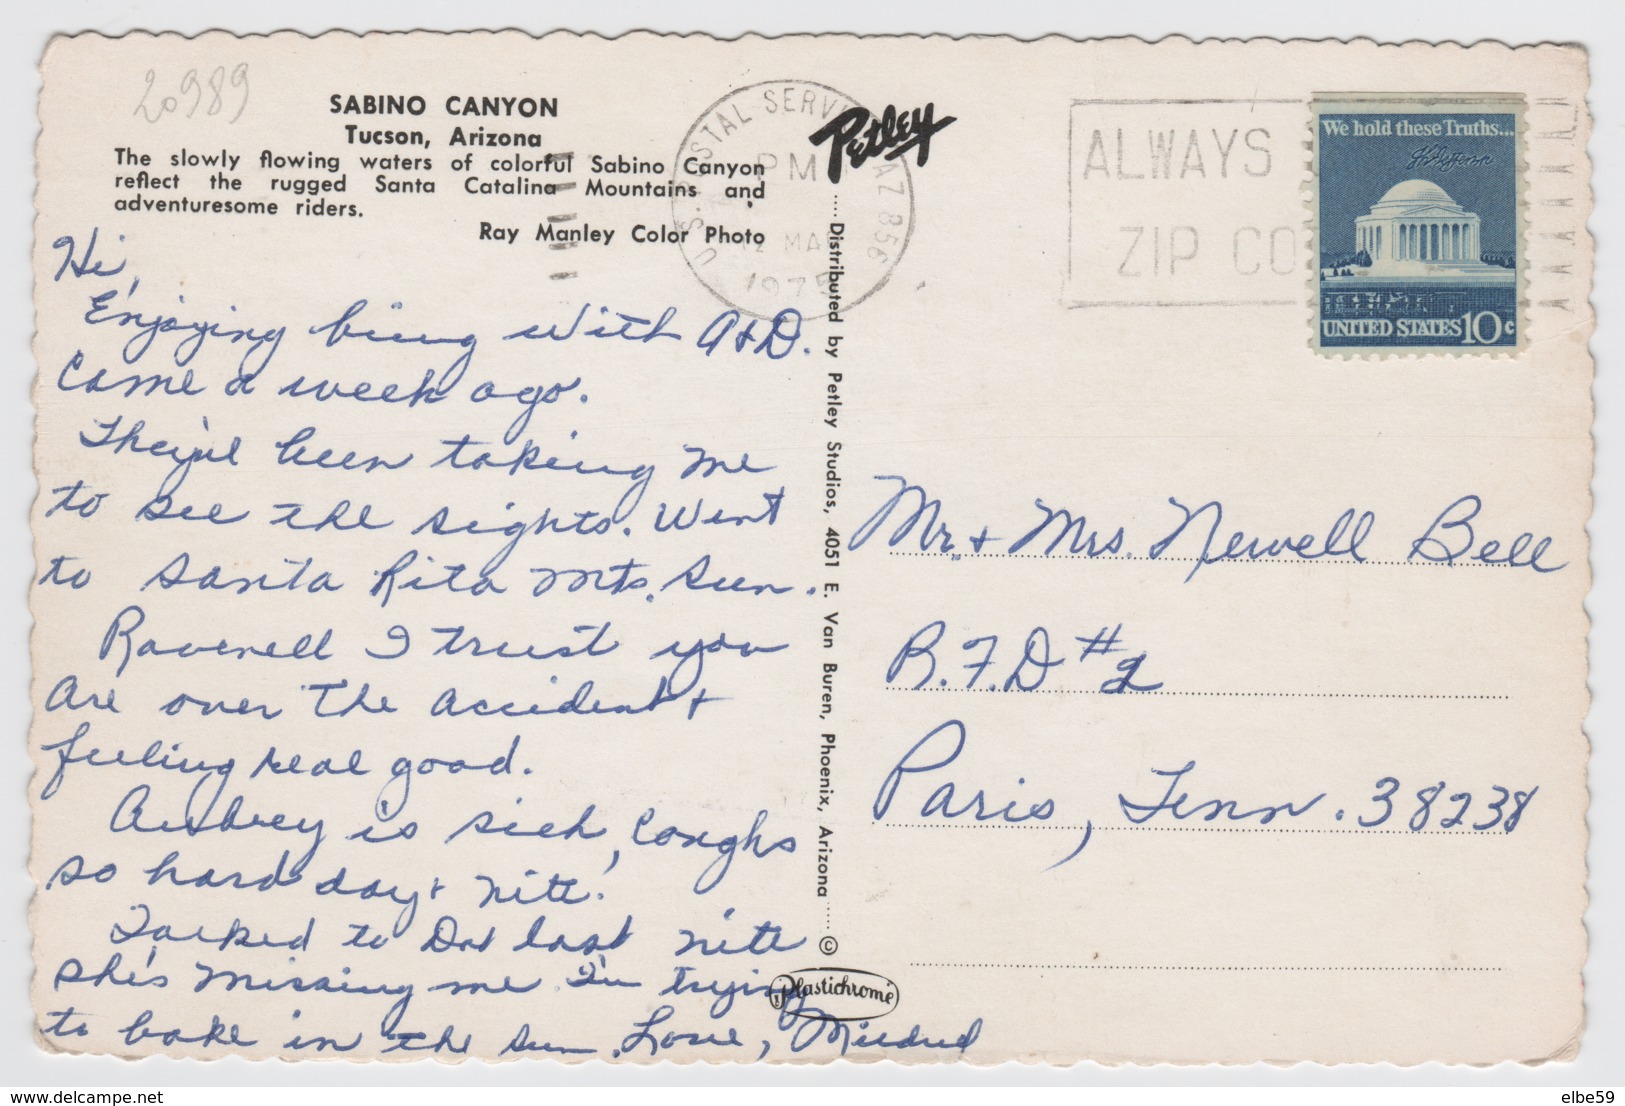 20989
SABINO CANYON
Tucson, Arizona
The slowly flowing waters of colorful Sabino Canyon
reflect the rugged Santa Catalina Mountains and
adventuresome riders.
Ray Manley Color Photo
Hi,
Enjoying being with A&D.
Came a week ago.
They've been taking me
to see the sights. Went
to Santa Rita Mts. Sun.
Ravenell I trust you
are over the accident &
feeling real good.
Aubrey is sick, Coughs
so hard day & nite!
Talked to Dot last nite
she's missing me I'm trying
to bake in the sun. Love, Mildred
U.S. POSTAL SERVICE AZ 856
PM
12 MAR
1975
Petley
Distributed by Petley Studios, 4051 E. Van Buren, Phoenix, Arizona ©
Plastichrome
ALWAYS
ZIP CO
We hold these Truths...
UNITED STATES 10c
Mr. & Mrs. Newell Bell
R.F.D #2
Paris, Tenn. 38238
www.delcampe.net
elbe59